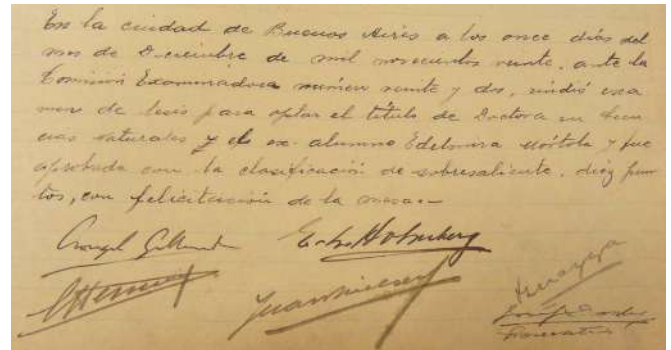 En la ciudad de Buenos Aires a los once días del
mes de Diciembre de mil novecientos veinte, ante la
Comisión Examinadora número veinte y dos, rindió exa
men de tesis para optar el título de Doctora en Cien
cias naturales y el ex-alumno Edelmira Mórtola y fue
aprobada con la clasificación de sobresaliente, diez pun
tos, con felicitación de la mesa.—